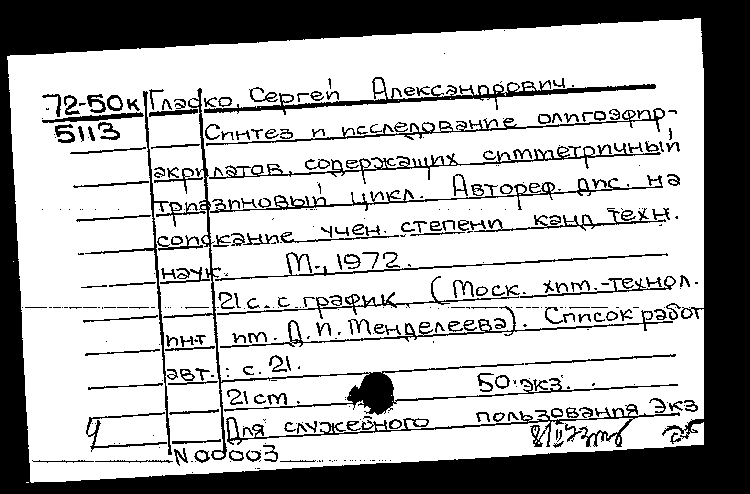 72-50к Гласко, Сергей Александрович.
5113 Синтез и исследование олигоэфир-
акрилатов, содержащих симметричный
триазиновый цикл. Автореф. дис. на
соискание учен. степени канд. техн.
наук. М., 1972.
21 с. с график. (Моск. хим.-технол.
инт им. Д. И. Менделеева). Список работ
авт.: с. 21.
21 ст. 50 экз.
Для служебного пользования. Экз
N. 00003